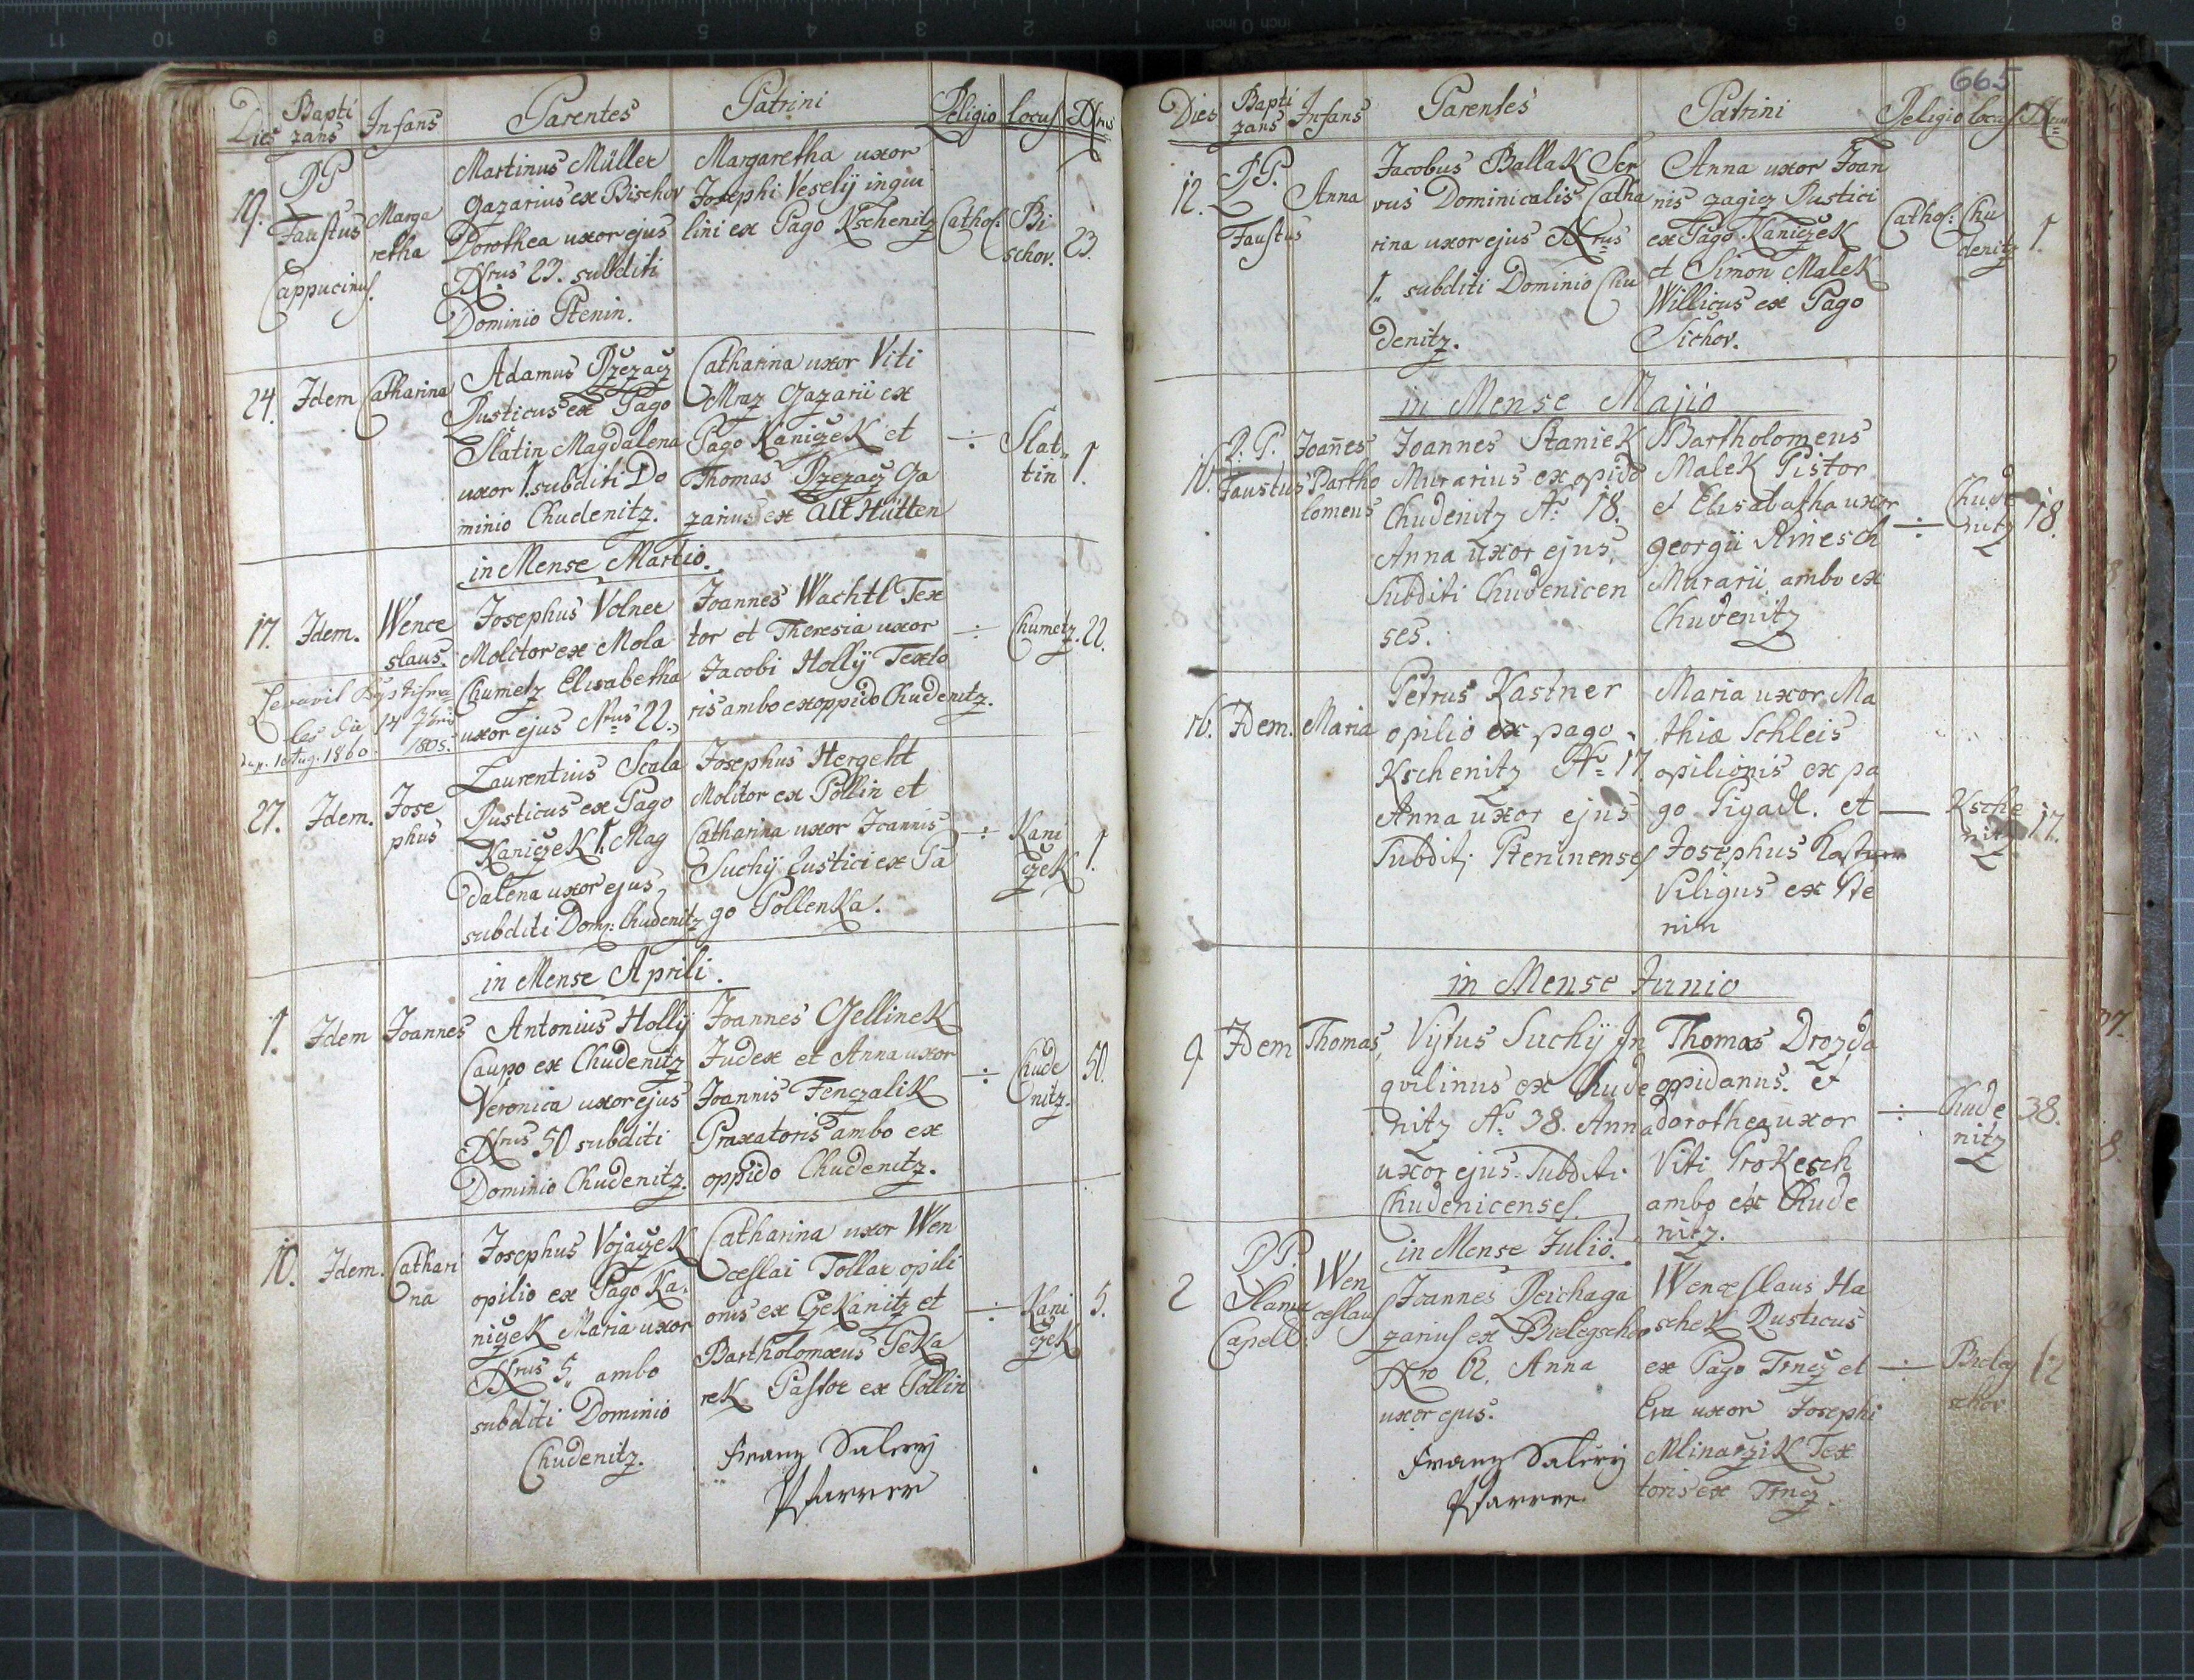 Dies Bapti Infans Parentes Patrini Religio locus Nrus
zans
19. PP Faustus Cappucinus.
Marga
retha
Martinus Müller
gazarius ex Bischov
Dorothea uxor ejus
Nrus 23. subditi
Dominio Ptenin.
Margaretha uxor
Josephi Veselÿ inqui
lini ex Pago Kschenitz
Cathol: Bi
schov. 23.
24. Idem Catharina
Adamus Rzezacz
Rusticus ex Pago
Slatin Magdalena
uxor 1. subditi Do
minio Chudenitz.
Catharina uxor Viti
Mraz Gazarii ex
Pago Kaniczek et
Thomas Rzezacz Ga
zarius ex Alt Hütten
÷ Slat
tin 1.
in Mense Martio.
17. Idem. Wence
slaus.
Josephus Volner
Molitor ex Mola
Chumetz Elisabetha
uxor ejus Nrus 22.
Joannes Wachtl Tex
tor et Theresia uxor
Jacobi Hollÿ Texto
ris ambo ex oppido Chudenitz.
÷ Chumetz. 22.
Levavit Baptisma
les die 14 7bris
1805.
1 Aug. 1860.
27. Idem. Jose
phus
Laurentius Scala
Rusticus ex Pago
Kaniczek 1. Mag
dalena uxor ejus
subditi Dom: Chudenitz
Josephus Hergeht
Molitor ex Pollin et
Catharina uxor Joannis
Suchÿ Rustici ex Pa
go Pollenka.
÷ Kani
czek 1.
in Mense Aprili.
1. Idem Joannes
Antonius Hollÿ
Caupo ex Chudenitz
Veronica uxor ejus
Nrus 50 subditi
Dominio Chudenitz.
Joannes Gellinek
Judex et Anna uxor
Joannis Fenczalik
Praxatoris ambo ex
oppido Chudenitz.
÷ Chude
nitz. 50.
10. Idem. Cathari
na
Josephus Vojaczek
opilio ex Pago Ka
niczek Maria uxor
Nrus 5. ambo
subditi Dominio
Chudenitz.
Catharina uxor Wen
ceslai Tollar opili
onis ex Czekanitz et
Bartholomæus Peka
rek Pastor ex Pollin
÷ Kani
czek 5.
Franz Salery
Pfarrer
665
Dies Bapti Infans Parentes Patrini Religio locus Num
zans
12. PP.
Faustus
Anna
Jacobus Ballak Ser
vus Dominicalis Catha
rina uxor ejus Nrus
1. subditi Dominio Chu
denitz.
Anna uxor Joan
nis zagicz Rustici
ex Pago Kaniczek
et Simon Malek
Willicus ex Pago
Sichov.
Cathol: Chu
denitz 1.
in Mense Majio
10. P. P.
Faustus
Joanes
Bartho
lomeus
Joannes Staniek
Murarius ex opido
Chudenitz N: 18.
Anna uxor ejus,
Subditi Chudenicen
ses.
Bartholomeus
Malek Pistor
et Elisabatha uxor
georgii Rinesch
Murarii ambo ex
Chudenitz
÷ Chude
nitz 18.
16. Idem. Maria
Petrus Kastner
opilio ex pago
Kschenitz N: 17
Anna uxor ejus
Subditj Pteninenses
Maria uxor Ma
thiæ Schleis
opilionis ex pa
go Pigadl. et
Josephus Kastner
Viligus ex Pte
nin
— Ksche
nitz 17.
in Mense Junio
9 Idem Thomas,
Vytus Suchÿ In
qvilinus ex Chude
nitz N: 38. Anna
uxor ejus. Subditi
Chudenicenses.
Thomas Drozda
oppidanus. et
dorothea uxor
Viti Prokesch
ambo ex Chude
nitz.
÷ Chude
nitz 38.
in Mense Julio.
2 PP.
Slama
Capell.
Wen
ceslaus
Joannes Reichaga
zarius ex Bielegschov
Nro 62. Anna
uxor ejus.
Wenceslaus Ha
schek Rusticus
ex Pago Trncz et
Eva uxor Josephi
Mlinarzik Tex
toris ex Trncz.
÷ Bieleg
schov 12
Franz Salery
Pfarrer